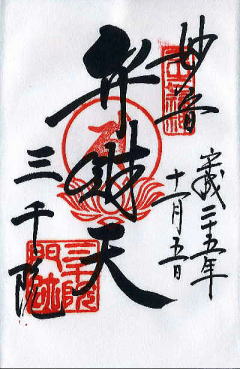 平成二十五年
十一月五日
妙音
弁財天
三千院
三千院
門跡